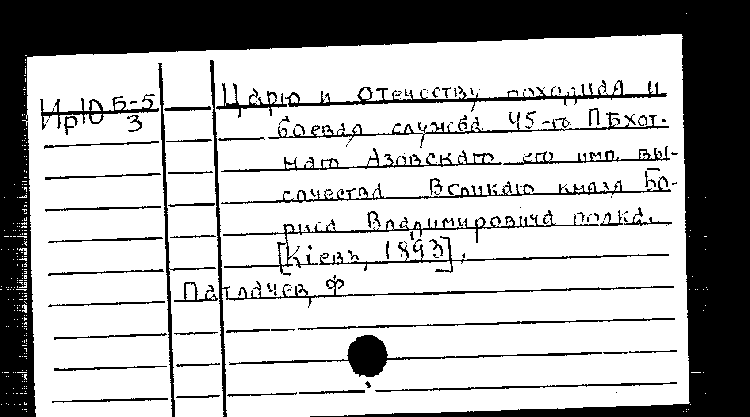 ИрЮ Б-5/3
Царю и Отечеству походная и
боевая служба 45-го Пѣхот-
наго Азовскаго его имп. вы-
сочества Великаго князя Бо-
риса Владимировича полка.
[Кіевъ, 1893],
Патлачев, Ф